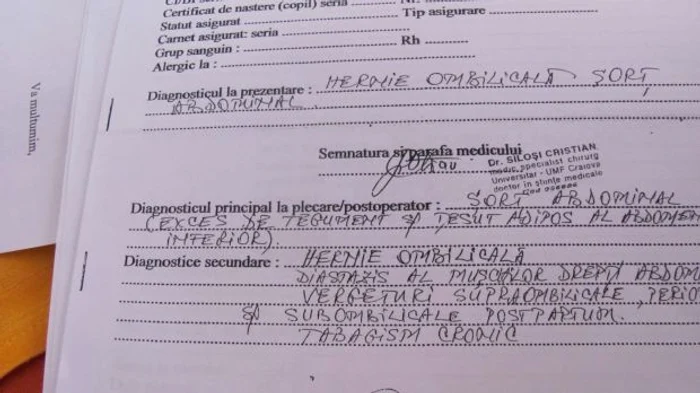 Certificat de nastere (copil) seria
Statut asigurat Tip asigurare
Carnet asigurat: seria
Grup sanguin : Rh
Alergic la :
Diagnosticul la prezentare : HERNIE OMBILICALĂ ŞORŢ
ABDOMINAL
Va multumim,
Semnatura si parafa medicului
Dr. SILOŞI CRISTIAN
medic specialist chirurg
Universitar - UMF Craiova
doctor in ştiinţe medicale
Diagnosticul principal la plecare/postoperator : ŞORŢ ABDOMINAL
(EXCES DE TEGUMENT ŞI ŢESUT ADIPOS AL ABDOMEN
INFERIOR).
Diagnostice secundare : HERNIE OMBILICALĂ
DIASTAZIS AL MUŞCHILOR DREPŢI ABDOM
VERGETURI SUPRAOMBILICALE, PERIO
ŞI SUBOMBILICALE POSTPARTUM.
TABAGISM CRONIC